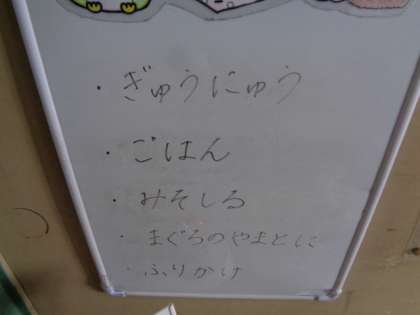 ・ぎゅうにゅう
・ごはん
・みそしる
・まぐろのやまとに
・ふりかけ